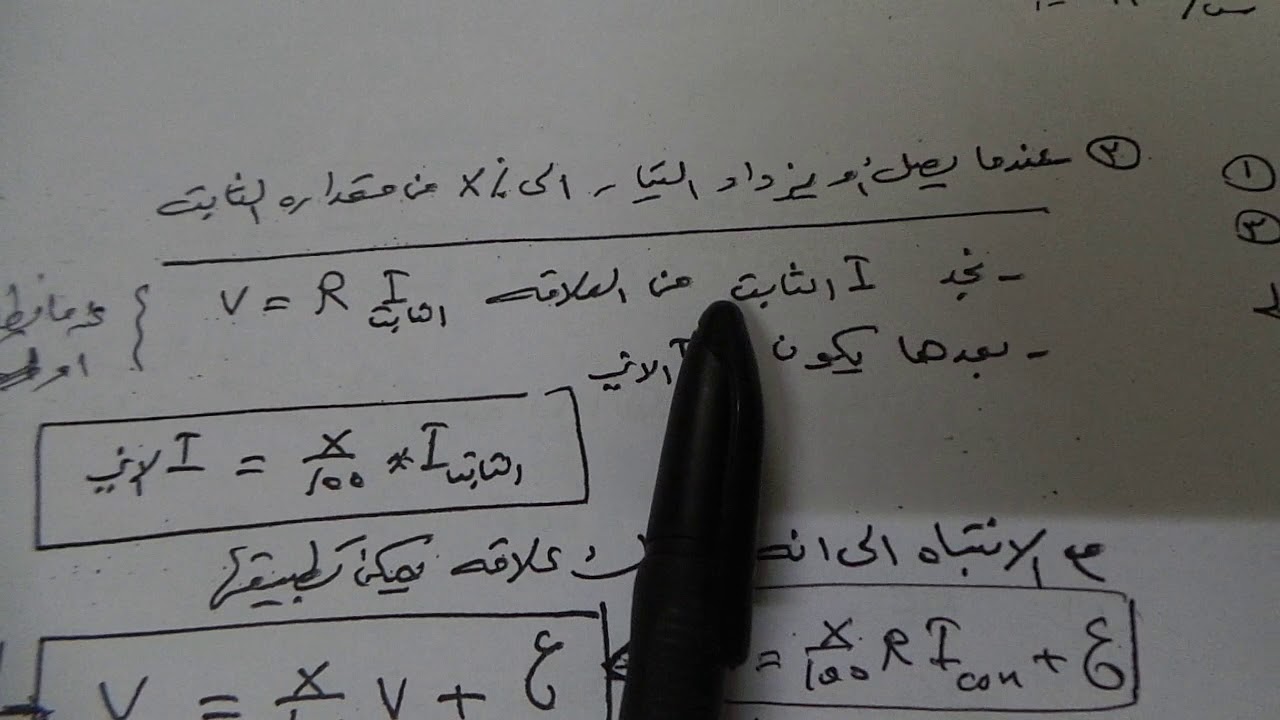 ② عندما يصل أو يزداد التيار الى X% من مقداره الثابت
①
③
- نجد I الثابت من العلاقه V = R I الثابت
- بعدها يكون I الاني
I الاني = X/100 * I الثابت
مع الانتباه الى انه علاقه يمكن تطبيقها
= X/100 R I con + ع
V = X V + ع